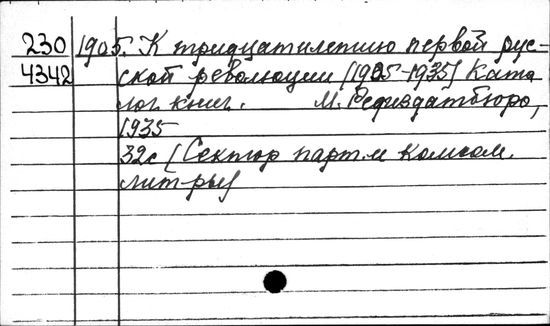 230 1905. К тридцатилетию первой рус-
4342 ской революции [1905-1935] Ката
лог книг. М. Редиздатбюро,
1935
32с [Сектор парт. и комсом.
лит-ры]